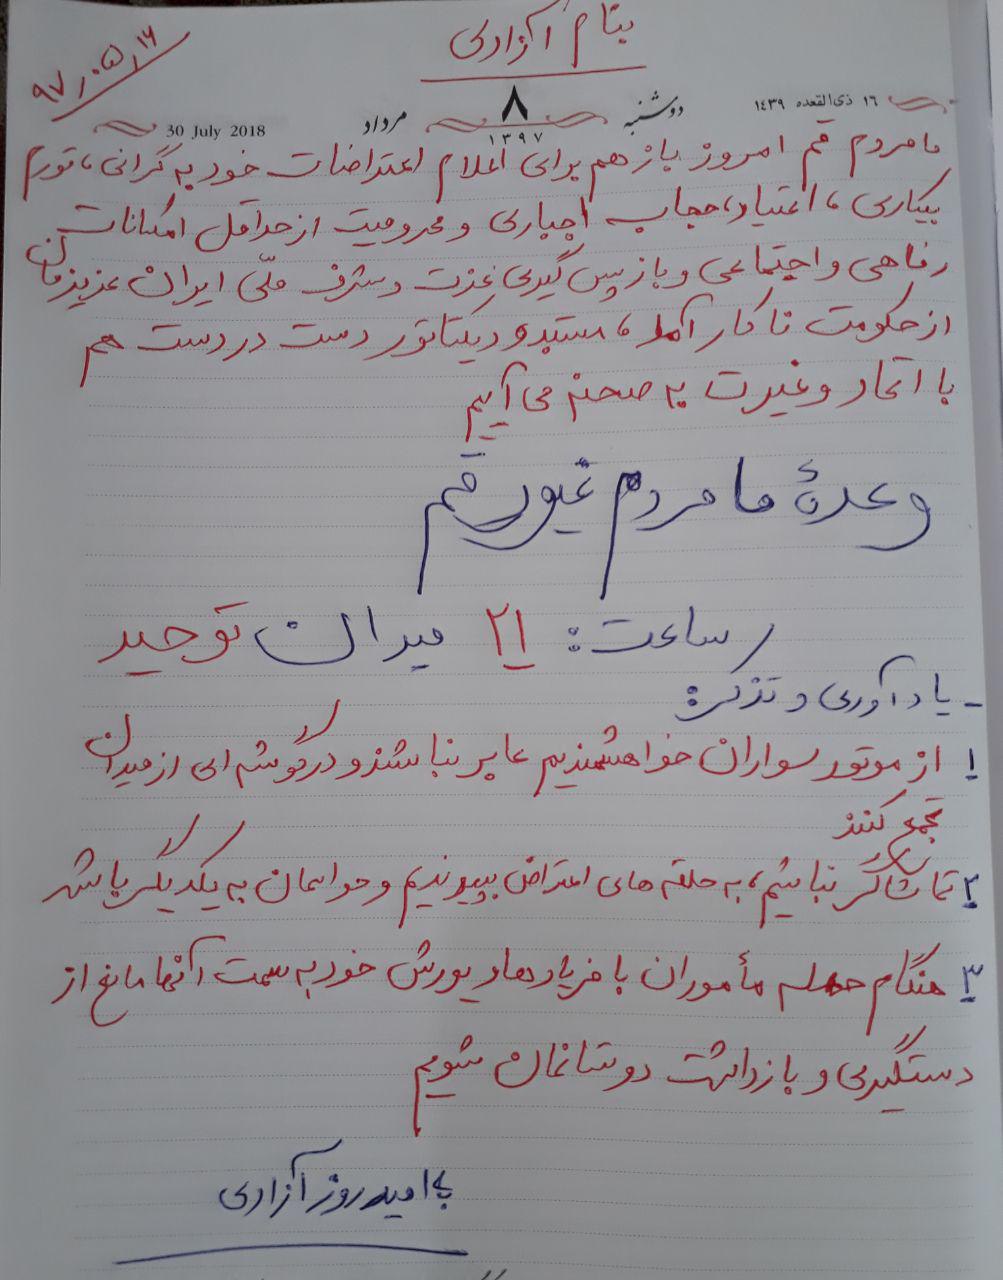 بنام آزادی
۹۷/۰۵/۱۶
۱۶ ذی‌القعده ۱۴۳۹
دوشنبه
۸
۱۳۹۷
مرداد
30 July 2018
ما مردم قم امروز باز هم برای اعلام اعتراضات خود به گرانی، تورم
بیکاری، اعتیاد، حجاب اجباری و محرومیت از حداقل امکانات
رفاهی و اجتماعی و باز پس گیری عزت و شرف ملّی ایران عزیزمان
از حکومت ناکارآمد، مستبد و دیکتاتور دست در دست هم
با اتحاد و غیرت به صحنه می آییم
وعدهٔ ما مردم غیور قم
ساعت: ۲۱ میدان توحید
- یادآوری و تذکر:
۱ از موتور سواران خواهشمندیم عابر نباشند و در گوشه ای از میدان
تجمع کنند
۲ تماشاگر نباشیم، به حلقه های اعتراض بپیوندیم و حواسمان به یکدیگر باشد
۳ هنگام حمله مأموران با فریادها و یورش خود به سمت آنها مانع از
دستگیری و بازداشت دوستانمان شویم
به امید روز آزادی